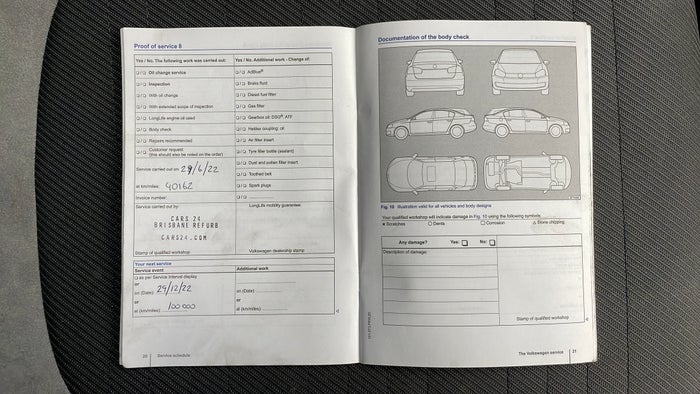 Proof of service 8
Yes / No. The following work was carried out:
❑/❑ Oil change service
❑/❑ Inspection
❑/❑ With oil change
❑/❑ With extended scope of inspection
❑/❑ LongLife engine oil used
❑/❑ Body check
❑/❑ Repairs recommended
❑/❑ Customer request
(this should also be noted on the order)
Service carried out on: 29/6/22
at km/miles: 90162
Invoice number:
Service carried out by:
CARS 24
BRISBANE REFURB
CARS24.COM
Stamp of qualified workshop
Yes / No. Additional work - Change of:
❑/❑ AdBlue®
❑/❑ Brake fluid
❑/❑ Diesel fuel filter
❑/❑ Gas filter
❑/❑ Gearbox oil: DSG®, ATF
❑/❑ Haldex coupling: oil
❑/❑ Air filter insert
❑/❑ Tyre filler bottle (sealant)
❑/❑ Dust and pollen filter insert
❑/❑ Toothed belt
❑/❑ Spark plugs
❑/❑
LongLife mobility guarantee
Volkswagen dealership stamp
Your next service
Service event
❑ as per Service Interval display
or
on (Date): 29/12/22
or
at (km/miles): 100 000
Additional work
on (Date):
or
at (km/miles):
20 Service schedule
Documentation of the body check
Fig. 10 Illustration valid for all vehicles and body designs
Your qualified workshop will indicate damage in Fig. 10 using the following symbols:
× Scratches ○ Dents □ Corrosion △ Stone chipping
Any damage? Yes: ❑ No: ❑
Description of damage:
Stamp of qualified workshop
The Volkswagen service 21